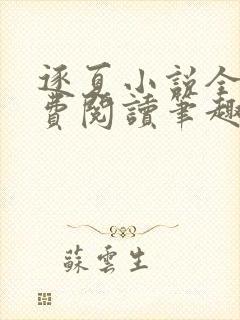 逐夏小說全
費閱讀筆趣
蘇雲生